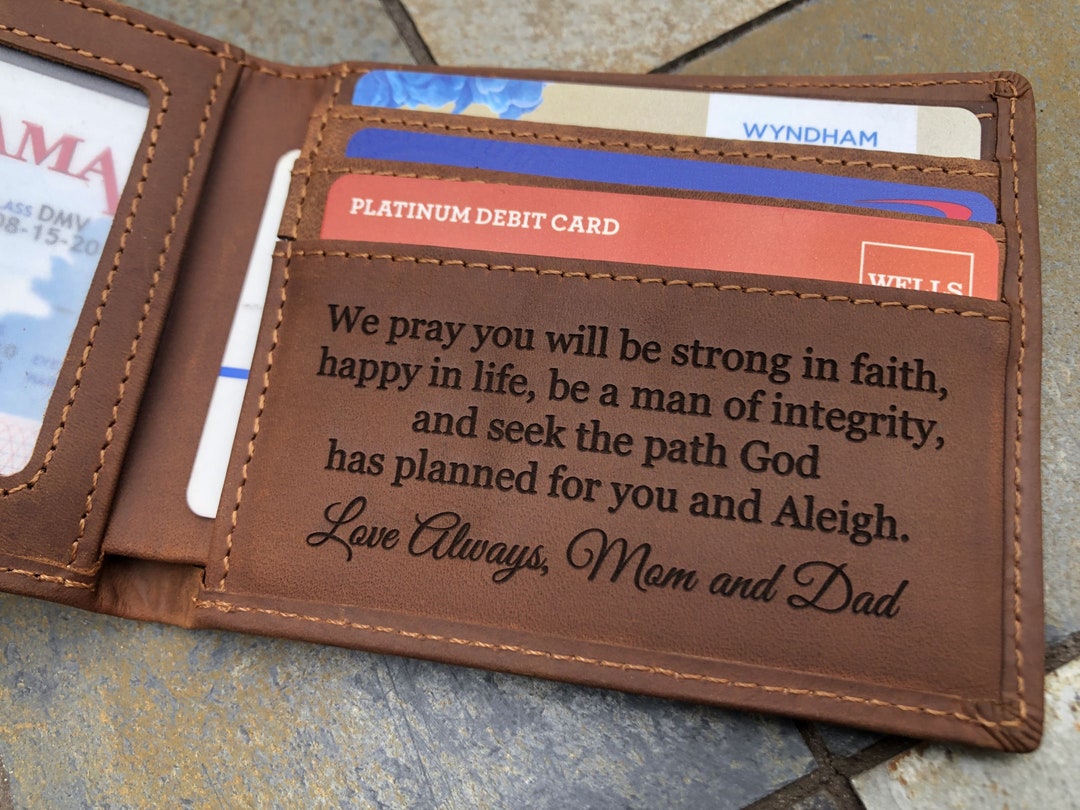 AMA
CLASS DMV
08-15-20
WYNDHAM
PLATINUM DEBIT CARD
WELLS
We pray you will be strong in faith,
happy in life, be a man of integrity,
and seek the path God
has planned for you and Aleigh.
Love Always, Mom and Dad